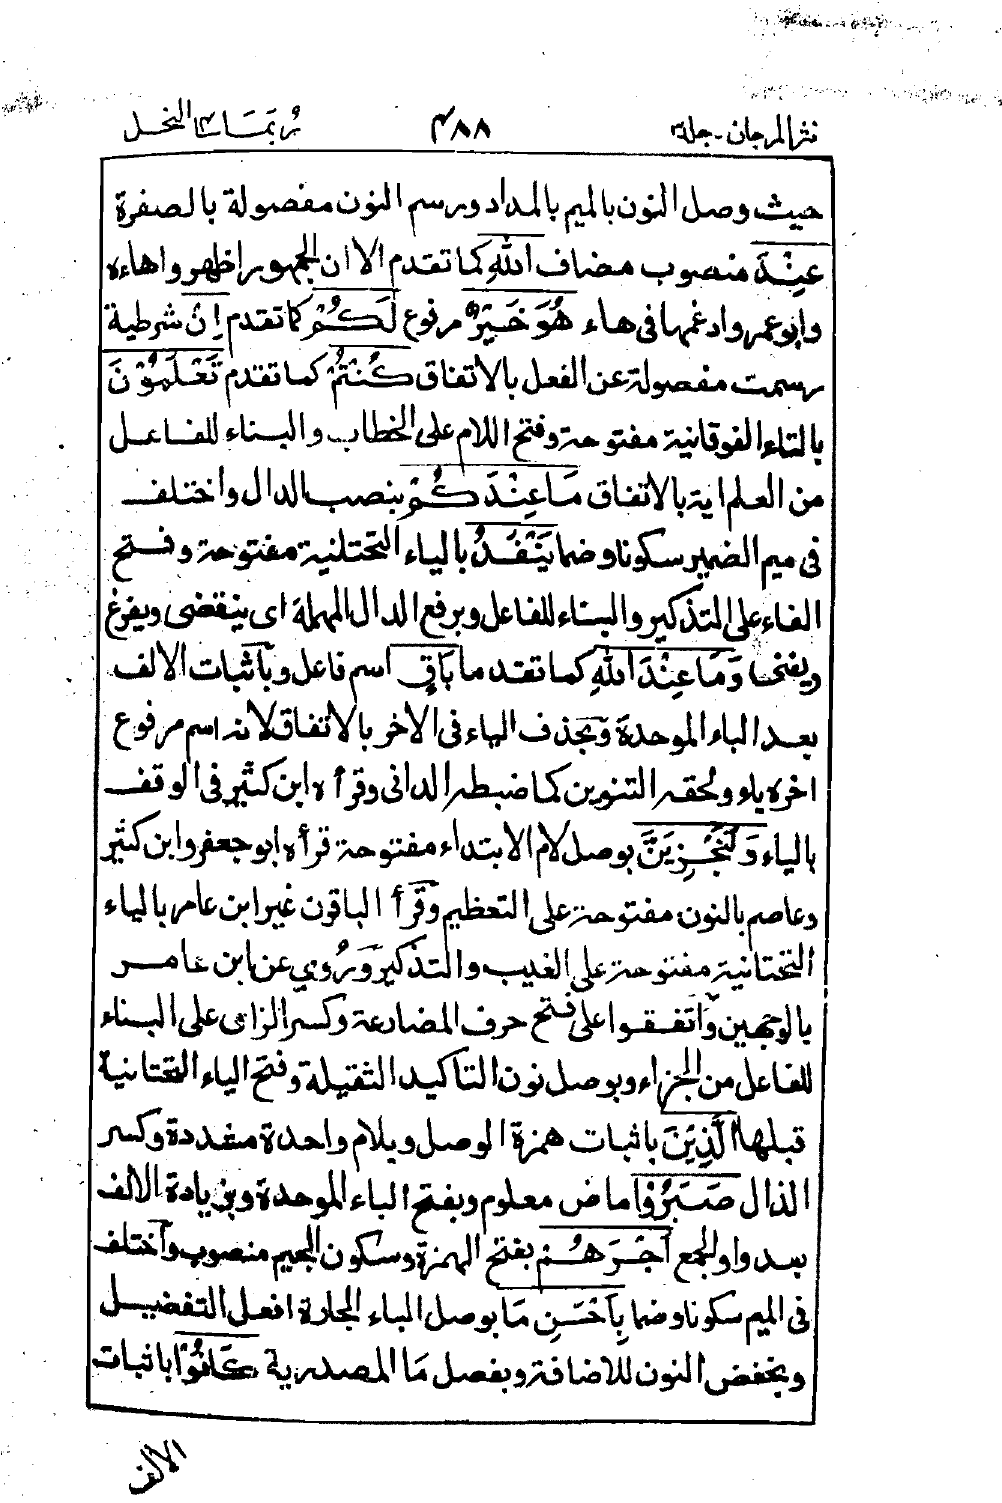 نثر المرجان - جلد ٣
٤٨٨
ربما ١٤ النحل
حيث وصل النون بالميم بالمداد ورسم النون مفصولة بالصفرة
عِنْدَ منصوب مضاف اللّٰهِ كما تقدم الا ان الجمهور اظهروا هاءه
وابو عمرو ادغمها فى هاء هُوَ خَيْرٌ مرفوع لَكُمْ كما تقدم اِنْ شرطية
رسمت مفصولة عن الفعل بالاتفاق كُنْتُمْ كما تقدم تَعْلَمُوْنَ
بالتاء الفوقانية مفتوحة وفتح اللام على الخطاب والبناء للفاعل
من العلم اية بالاتفاق مَا عِنْدَكُمْ بنصب الدال واختلف
فى ميم الضمير سكونا وضما يَنْفَدُ بالياء التحتانية مفتوحة وفتح
الفاء على التذكير والبناء للفاعل وبرفع الدال المهملة اى ينقضى ويفرغ
ويفنى وَمَا عِنْدَ اللّٰهِ كما تقدما بَاقٍ اسم فاعل وباثبات الالف
بعد الباء الموحدة وبحذف الياء فى الاخر بالاتفاق لانه اسم مرفوع
اخره ياء ولحقه التنوين كما ضبطه الدانى وقرأه ابن كثير فى الوقف
بالياء وَلَنَجْزِيَنَّ بوصل لام الابتداء مفتوحة قرأه ابو جعفر وابن كثير
وعاصم بالنون مفتوحة على التعظيم وقرأ الباقون غير ابن عامر بالياء
التحتانية مفتوحة على الغيب والتذكير ورُوي عن ابن عامر
بالوجهين واتفقوا على فتح حرف المضارعة وكسر الزاى على البناء
للفاعل من الجزاء وبوصل نون التاكيد الثقيلة وفتح الياء التحتانية
قبلها الَّذِيْنَ باثبات همزة الوصل وبلام واحدة مشددة وكسر
الذال صَبَرُوْا ماض معلوم وبفتح الباء الموحدة وبزيادة الالف
بعد واو الجمع اَجْرَهُمْ بفتح الهمزة وسكون الجيم منصوب واختلف
فى الميم سكونا وضما بِاَحْسَنِ مَا بوصل الباء الجارة افعل التفضيل
وبخفض النون للاضافة وبفصل مَا المصدرية كَانُوْا باثبات
الالف